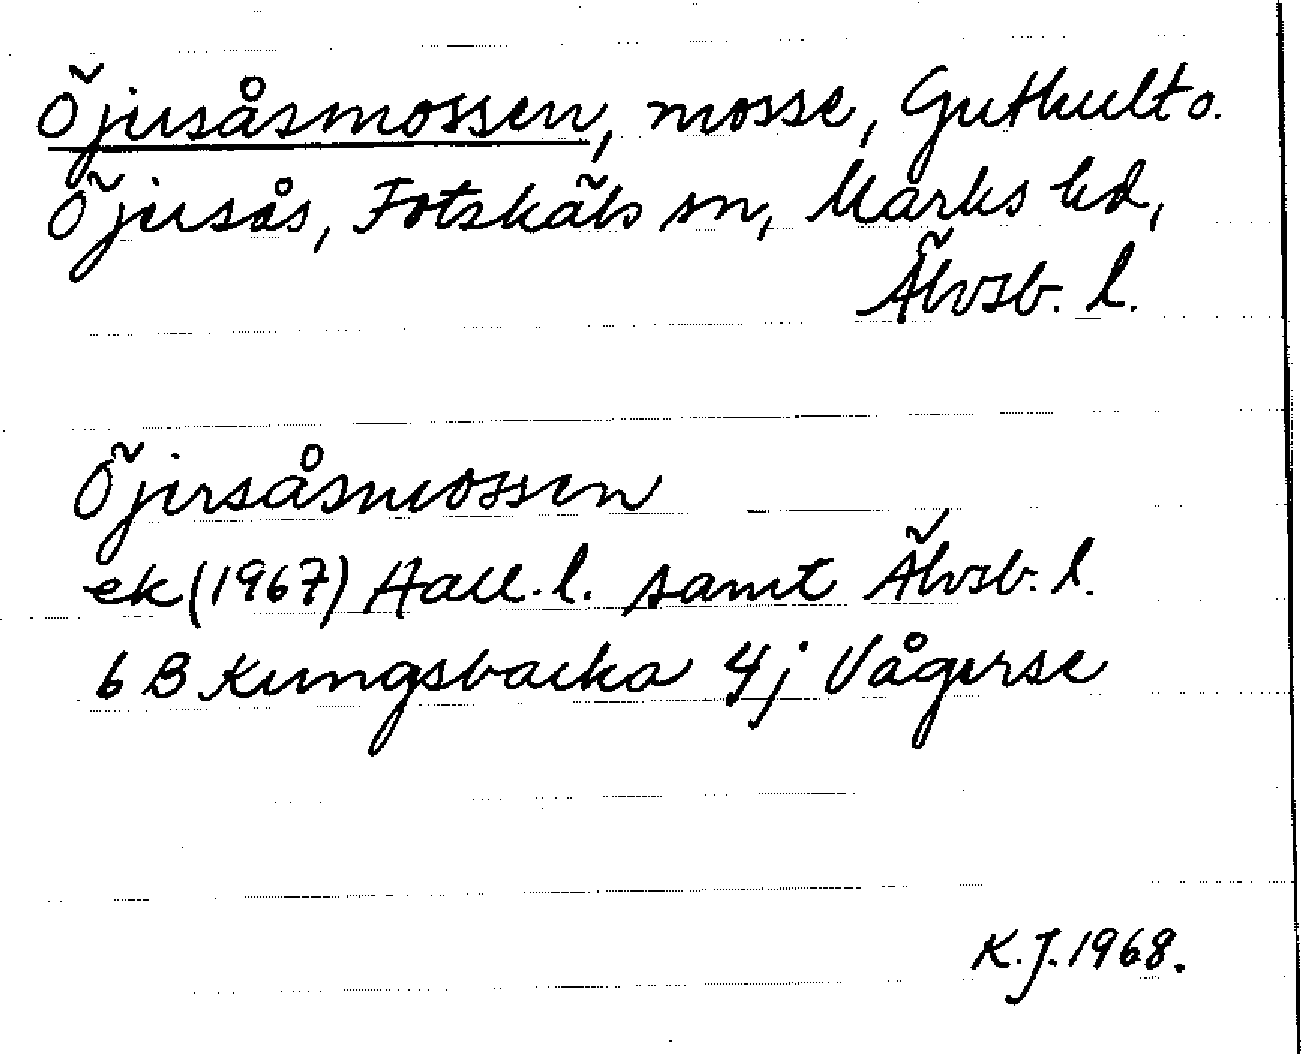 Öjersåsmossen, mosse, Guthult o.
Öjersås, Fotskäls sn, Marks hd,
Älvsb. l.
Öjersåsmossen
ek (1967) Hall. l. samt Älvsb. l.
6 B Kungsbacka 4j Vågerse
K.J. 1968.